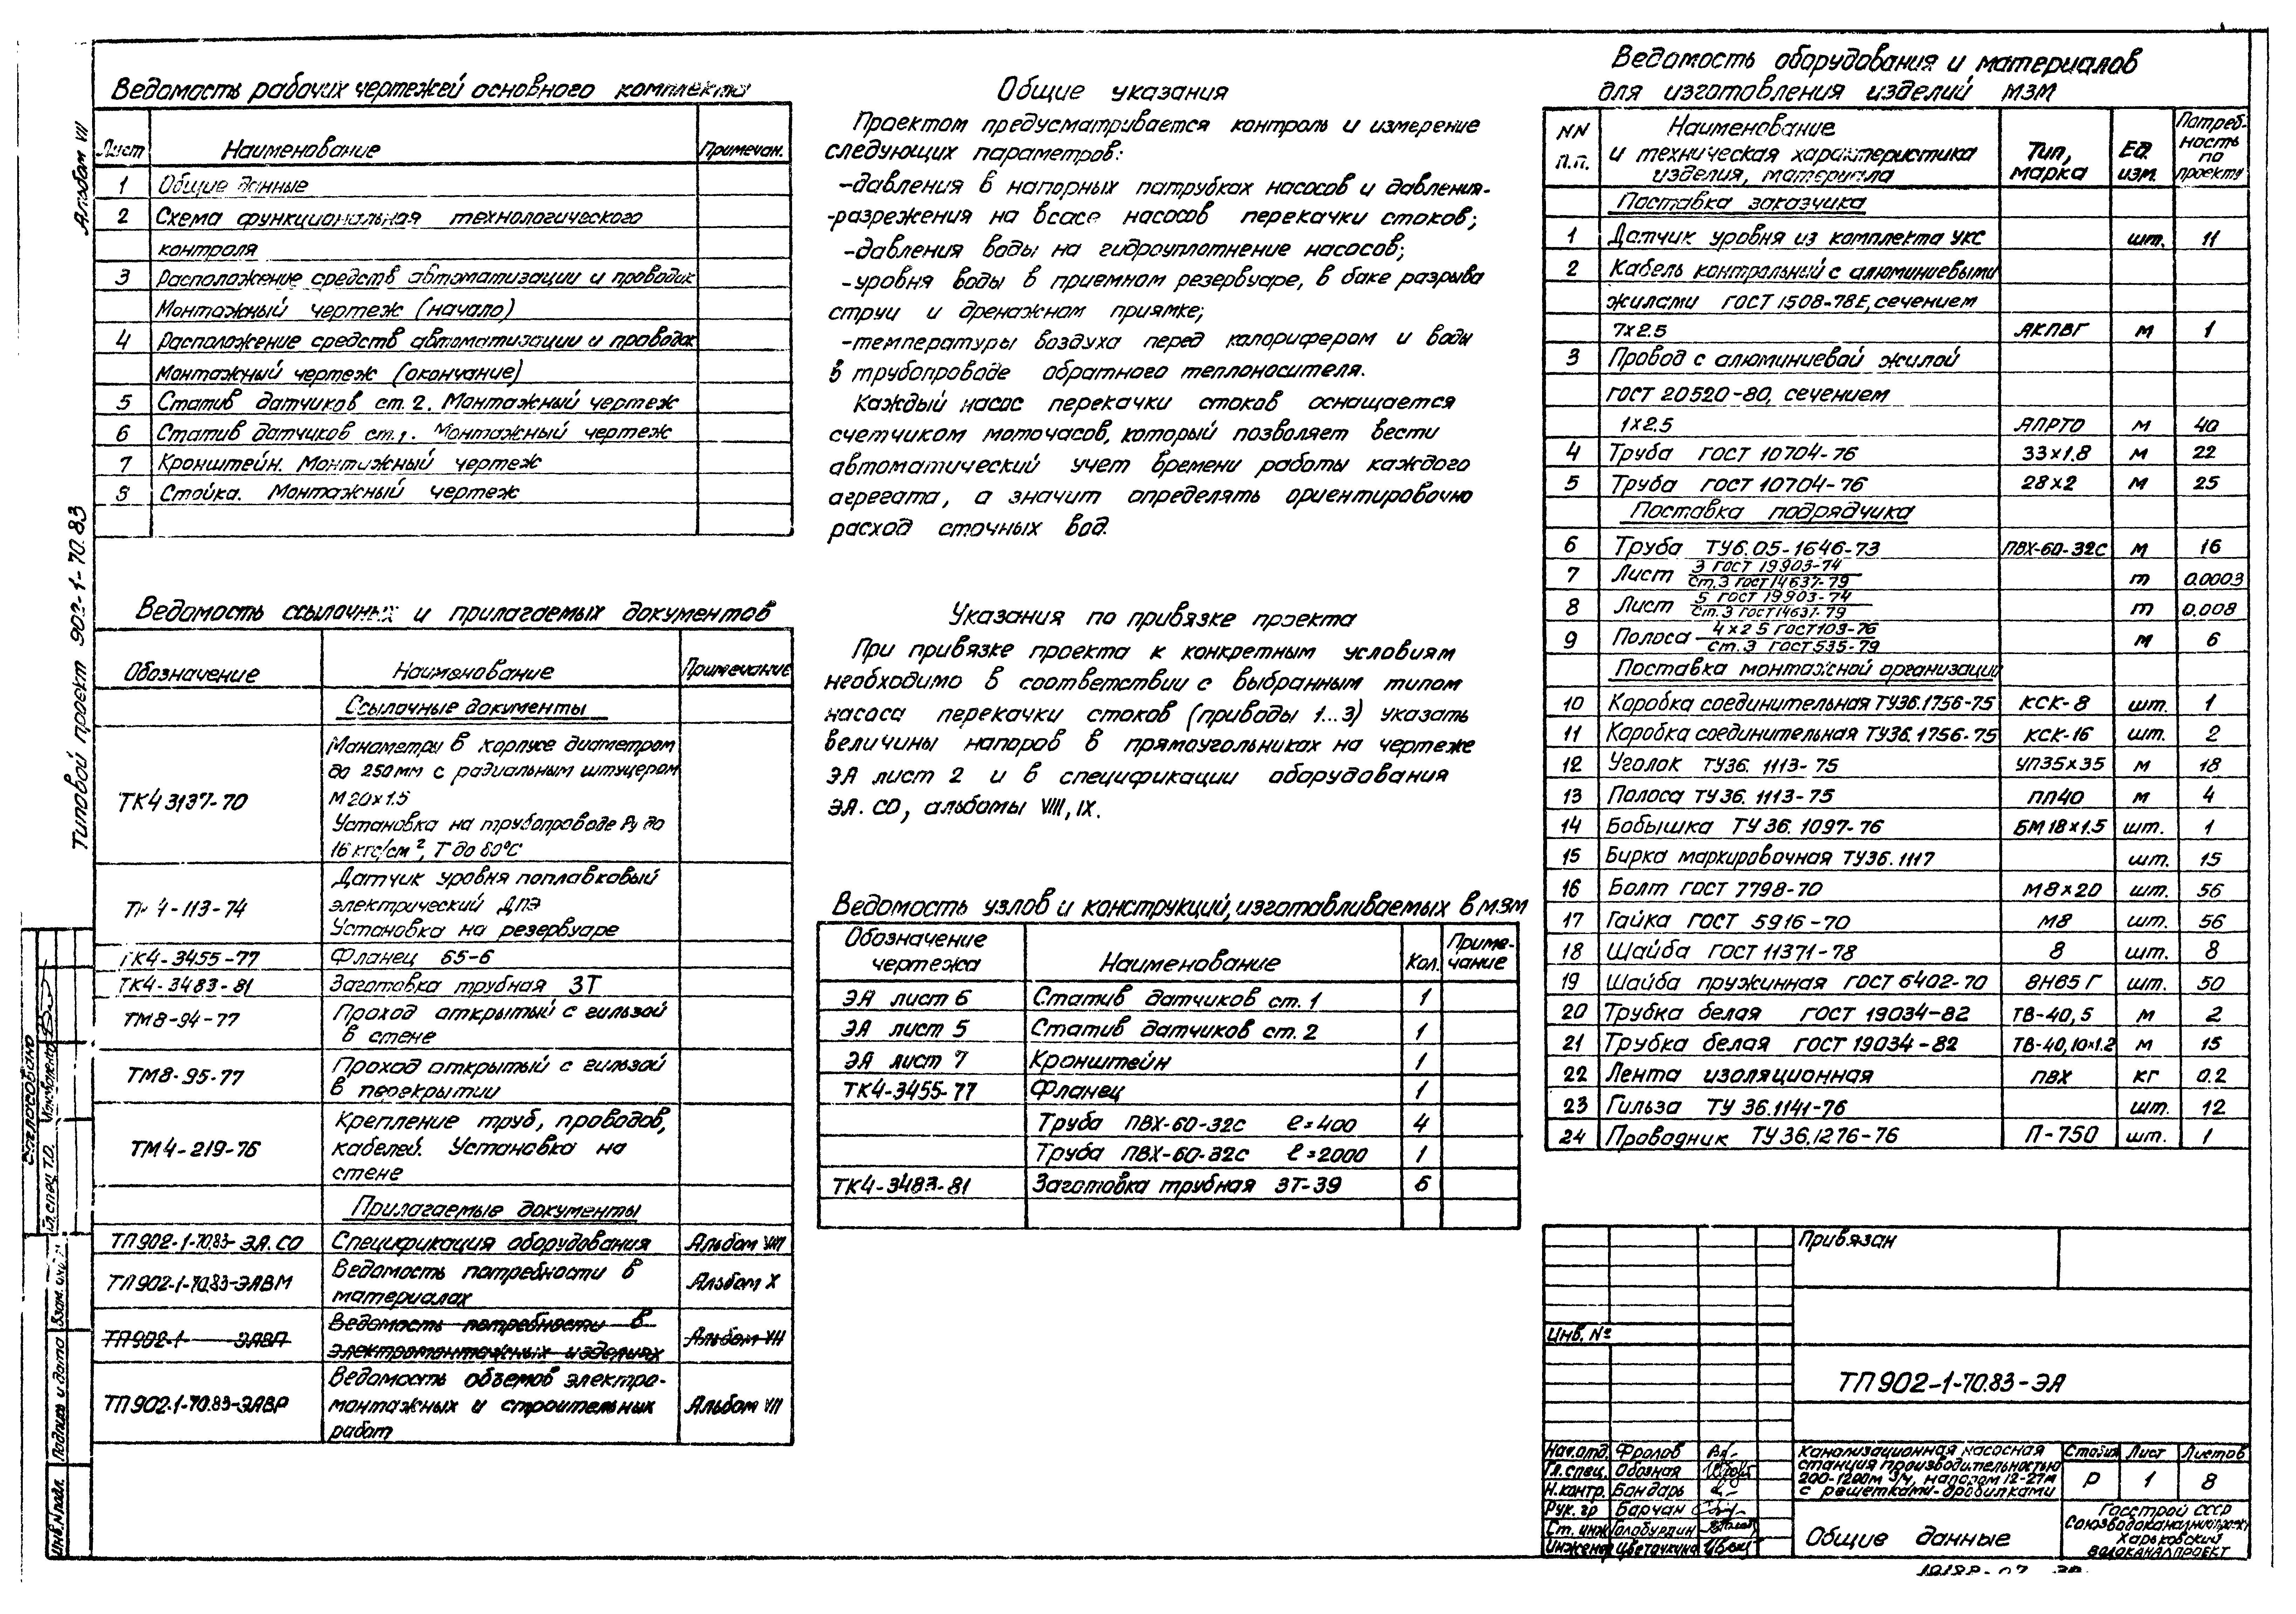 Альбом VII
Типовой проект 902-1-70.83
Ведомость рабочих чертежей основного комплекта
Лист Наименование Примечан.
1 Общие данные
2 Схема функциональная технологического
контроля
3 Расположение средств автоматизации и проводок
Монтажный чертеж (начало)
4 Расположение средств автоматизации и проводок
Монтажный чертеж (окончание)
5 Статив датчиков ст. 2. Монтажный чертеж
6 Статив датчиков ст. 1. Монтажный чертеж
7 Кронштейн. Монтажный чертеж
8 Стойка. Монтажный чертеж
Ведомость ссылочных и прилагаемых документов
Обозначение Наименование Примечание
Ссылочные документы
ТК4 3137-70 Манометры в корпусе диаметром
до 250мм с радиальным штуцером
М20х1.5
Установка на трубопроводе Ру до
16 кгс/см², Т до 80°С
4-113-74 Датчик уровня поплавковый
электрический ДПЭ
Установка на резервуаре
ТК4-3455-77 Фланец 65-6
ТК4-3483-81 Заготовка трубная ЗТ
ТМ8-94-77 Проход открытый с гильзой
в стене
ТМ8-95-77 Проход открытый с гильзой
в перекрытии
ТМ4-219-76 Крепление труб, проводов,
кабелей. Установка на
стене
Прилагаемые документы
ТП902-1-70.83-ЭА.СО Спецификация оборудования Альбом VIII
ТП902-1-70.83-ЭАВМ Ведомость потребности в
материалах Альбом X
ТП902-1 ЭАВП Ведомость потребности в
электромонтажных изделиях Альбом VII
ТП902.1-70.83-ЭАВР Ведомость объемов электро-
монтажных и строительных
работ Альбом VII
Общие указания
Проектом предусматривается контроль и измерение
следующих параметров:
-давления в напорных патрубках насосов и давления-
-разрежения на всасе насосов перекачки стоков;
-давления воды на гидроуплотнение насосов;
-уровня воды в приемном резервуаре, в баке разрыва
струи и дренажном приямке;
-температуры воздуха перед калорифером и воды
в трубопроводе обратного теплоносителя.
Каждый насос перекачки стоков оснащается
счетчиком моточасов, который позволяет вести
автоматический учет времени работы каждого
агрегата, а значит определять ориентировочно
расход сточных вод.
Указания по привязке проекта
При привязке проекта к конкретным условиям
необходимо в соответствии с выбранным типом
насоса перекачки стоков (приводы 1...3) указать
величины напоров в прямоугольниках на чертеже
ЭА лист 2 и в спецификации оборудования
ЭА.СО, альбомы VIII, IX.
Ведомость узлов и конструкций, изготавливаемых в МЗМ
Обозначение
чертежа Наименование Кол. Приме-
чание
ЭА лист 6 Статив датчиков ст. 1 1
ЭА лист 5 Статив датчиков ст. 2 1
ЭА лист 7 Кронштейн 1
ТК4-3455-77 Фланец 1
Труба ПВХ-60-32с ℓ=400 4
Труба ПВХ-60-32с ℓ=2000 1
ТК4-3483-81 Заготовка трубная ЗТ-39 6
Ведомость оборудования и материалов
для изготовления изделий МЗМ
NN
п.п. Наименование
и техническая характеристика
изделия, материала Тип,
марка Ед.
изм. Потреб-
ность
по
проекту
Поставка заказчика
1 Датчик уровня из комплекта УКС шт. 11
2 Кабель контрольный с алюминиевыми
жилами ГОСТ 1508-78Е, сечением
7х2.5 АКПВГ м 1
3 Провод с алюминиевой жилой
ГОСТ 20520-80, сечением
1х2.5 АПРТО м 40
4 Труба ГОСТ 10704-76 33х1.8 м 22
5 Труба ГОСТ 10704-76 28х2 м 25
Поставка подрядчика
6 Труба ТУ6.05-1646-73 ПВХ-60-32с м 16
7 Лист 3 ГОСТ 19903-74 / Ст.3 ГОСТ 14637-79 т 0.0003
8 Лист 5 ГОСТ 19903-74 / Ст.3 ГОСТ 14637-79 т 0.008
9 Полоса 4х25 ГОСТ 103-76 / Ст.3 ГОСТ 535-79 м 6
Поставка монтажной организации
10 Коробка соединительная ТУ36.1756-75 КСК-8 шт. 1
11 Коробка соединительная ТУ36.1756-75 КСК-16 шт. 2
12 Уголок ТУ36.1113-75 УП35х35 м 18
13 Полоса ТУ36.1113-75 ПП40 м 4
14 Бобышка ТУ36.1097-76 БМ18х1.5 шт. 1
15 Бирка маркировочная ТУ36.1117 шт. 15
16 Болт ГОСТ 7798-70 М8х20 шт. 56
17 Гайка ГОСТ 5916-70 М8 шт. 56
18 Шайба ГОСТ 11371-78 8 шт. 8
19 Шайба пружинная ГОСТ 6402-70 8Н65Г шт. 50
20 Трубка белая ГОСТ 19034-82 ТВ-40,5 м 2
21 Трубка белая ГОСТ 19034-82 ТВ-40,10х1.2 м 15
22 Лента изоляционная ПВХ кг 0.2
23 Гильза ТУ 36.1141-76 шт. 12
24 Проводник ТУ 36.1276-76 П-750 шт. 1
Привязан
Инв. №
ТП902-1-70.83-ЭА
Нач.отд. Фролов
Гл.спец. Обозная
Н.контр. Бондарь
Рук. гр Барчан
Ст. инж Голобурдин
Инженер Цветочкина
Канализационная насосная
станция производительностью
200-1200м³/ч, напором 12-27м
с решетками-дробилками
Стадия Лист Листов
Р 1 8
Общие данные
Госстрой СССР
Союзводоканалниипроект
Харьковский
ВОДОКАНАЛПРОЕКТ
Согласовано
Гл.спец Т.О.
Взам. инв.
Подпись и дата
Инв.N подл.